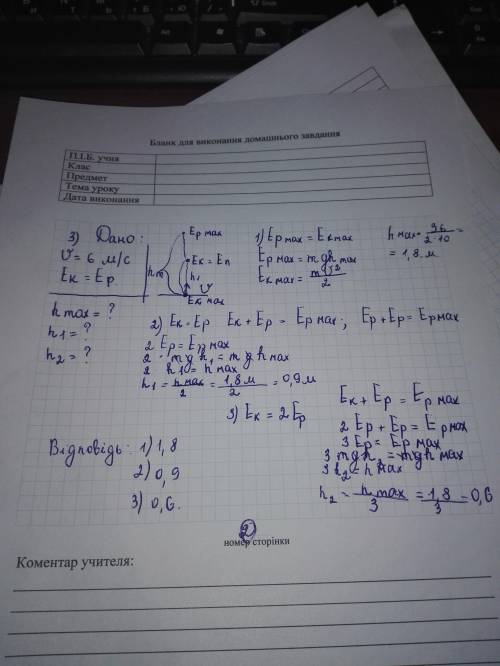 Бланк для виконання домашнього завдання
П.І.Б. учня
Клас
Предмет
Тема уроку
Дата виконання
3) Дано:
υ = 6 м/с
Eк = Ep
h max = ?
h1 = ?
h2 = ?
Ep max
Eк = Eп
h m
h1
υ
Eк max
1) Ep max = Eк max
Ep max = mgh max
Eк max = mυ²/2
h max = 36/2·10 =
= 1,8 м
2) Eк = Ep Eк + Ep = Ep max; Ep + Ep = Ep max
2 Ep = Ep max
2 · mgh1 = mgh max
2 h1 = h max
h1 = h max/2 = 1,8 м/2 = 0,9 м
3) Eк = 2Ep
Eк + Ep = Ep max
2 Ep + Ep = Ep max
3 Ep = Ep max
3 mgh2 = mgh max
3 h2 = h max
h2 = h max/3 = 1,8/3 = 0,6
Відповідь: 1) 1,8
2) 0,9
3) 0,6.
2
номер сторінки
Коментар учителя: